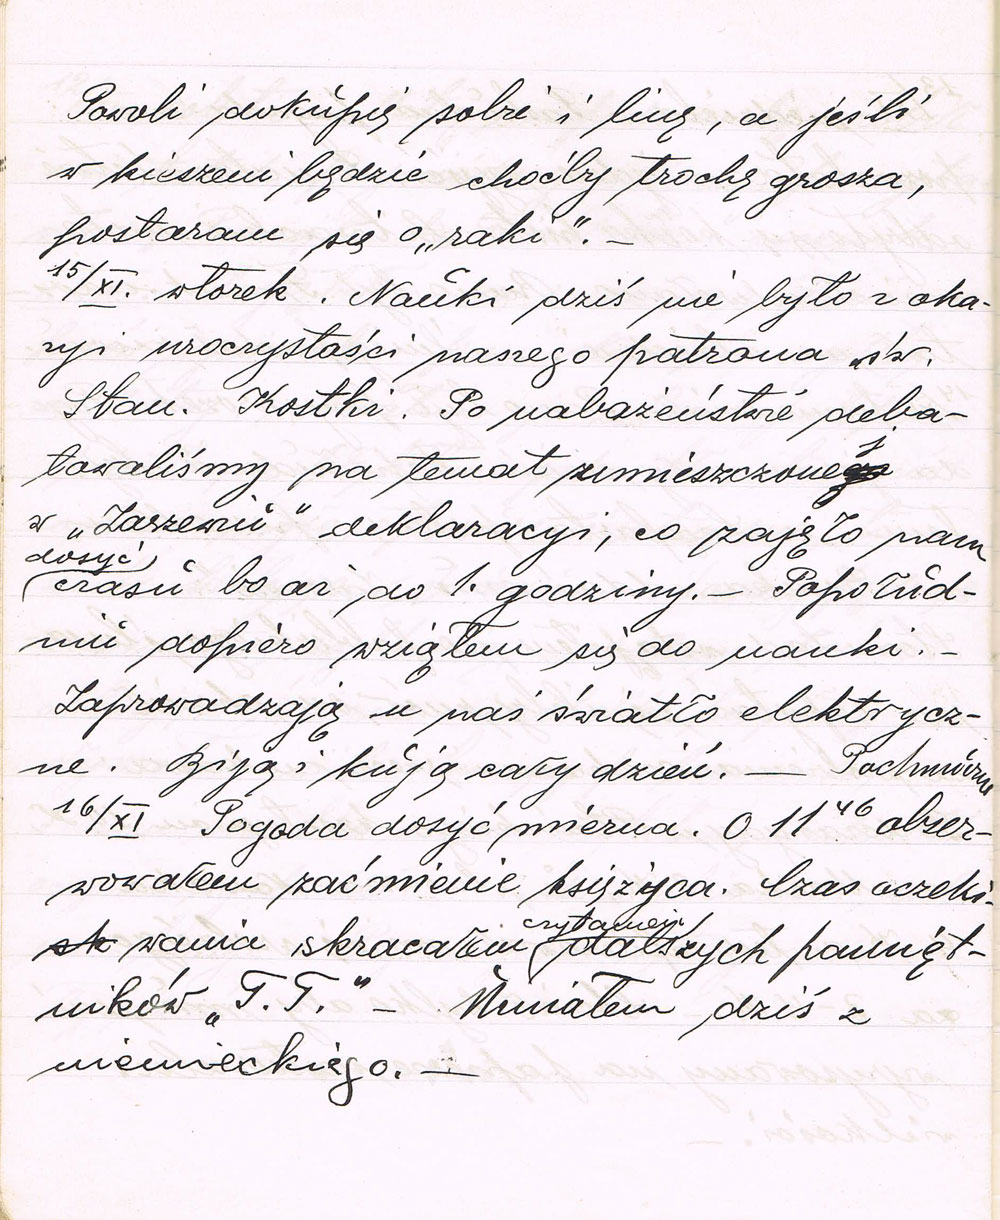 Powoli dokupię sobie i linę, a jeśli
w kieszeni będzie choćby trochę grosza,
postaram się o „raki". —
15/XI. wtorek. Nauki dziś nie było z oka-
zyi uroczystości naszego patrona św.
Stan. Kostki. Po nabożeństwie deba-
towaliśmy na temat umieszczonej
w „Zarzewiu" deklaracyi, co zajęło nam
dosyć
czasu bo aż do 1. godziny. — Popołud-
niu dopiero wziąłem się do nauki. —
Zaprowadzają u nas światło elektrycz-
ne. Biją i kują cały dzień. — Pochmurno
16/XI Pogoda dosyć mierna. O 11 46 obser-
wowałem zaćmienie księżyca. Czas oczeki-
wania skracałem czytaniem dalszych pamięt-
ników „T. T." — Umiałem dziś z
niemieckiego. —